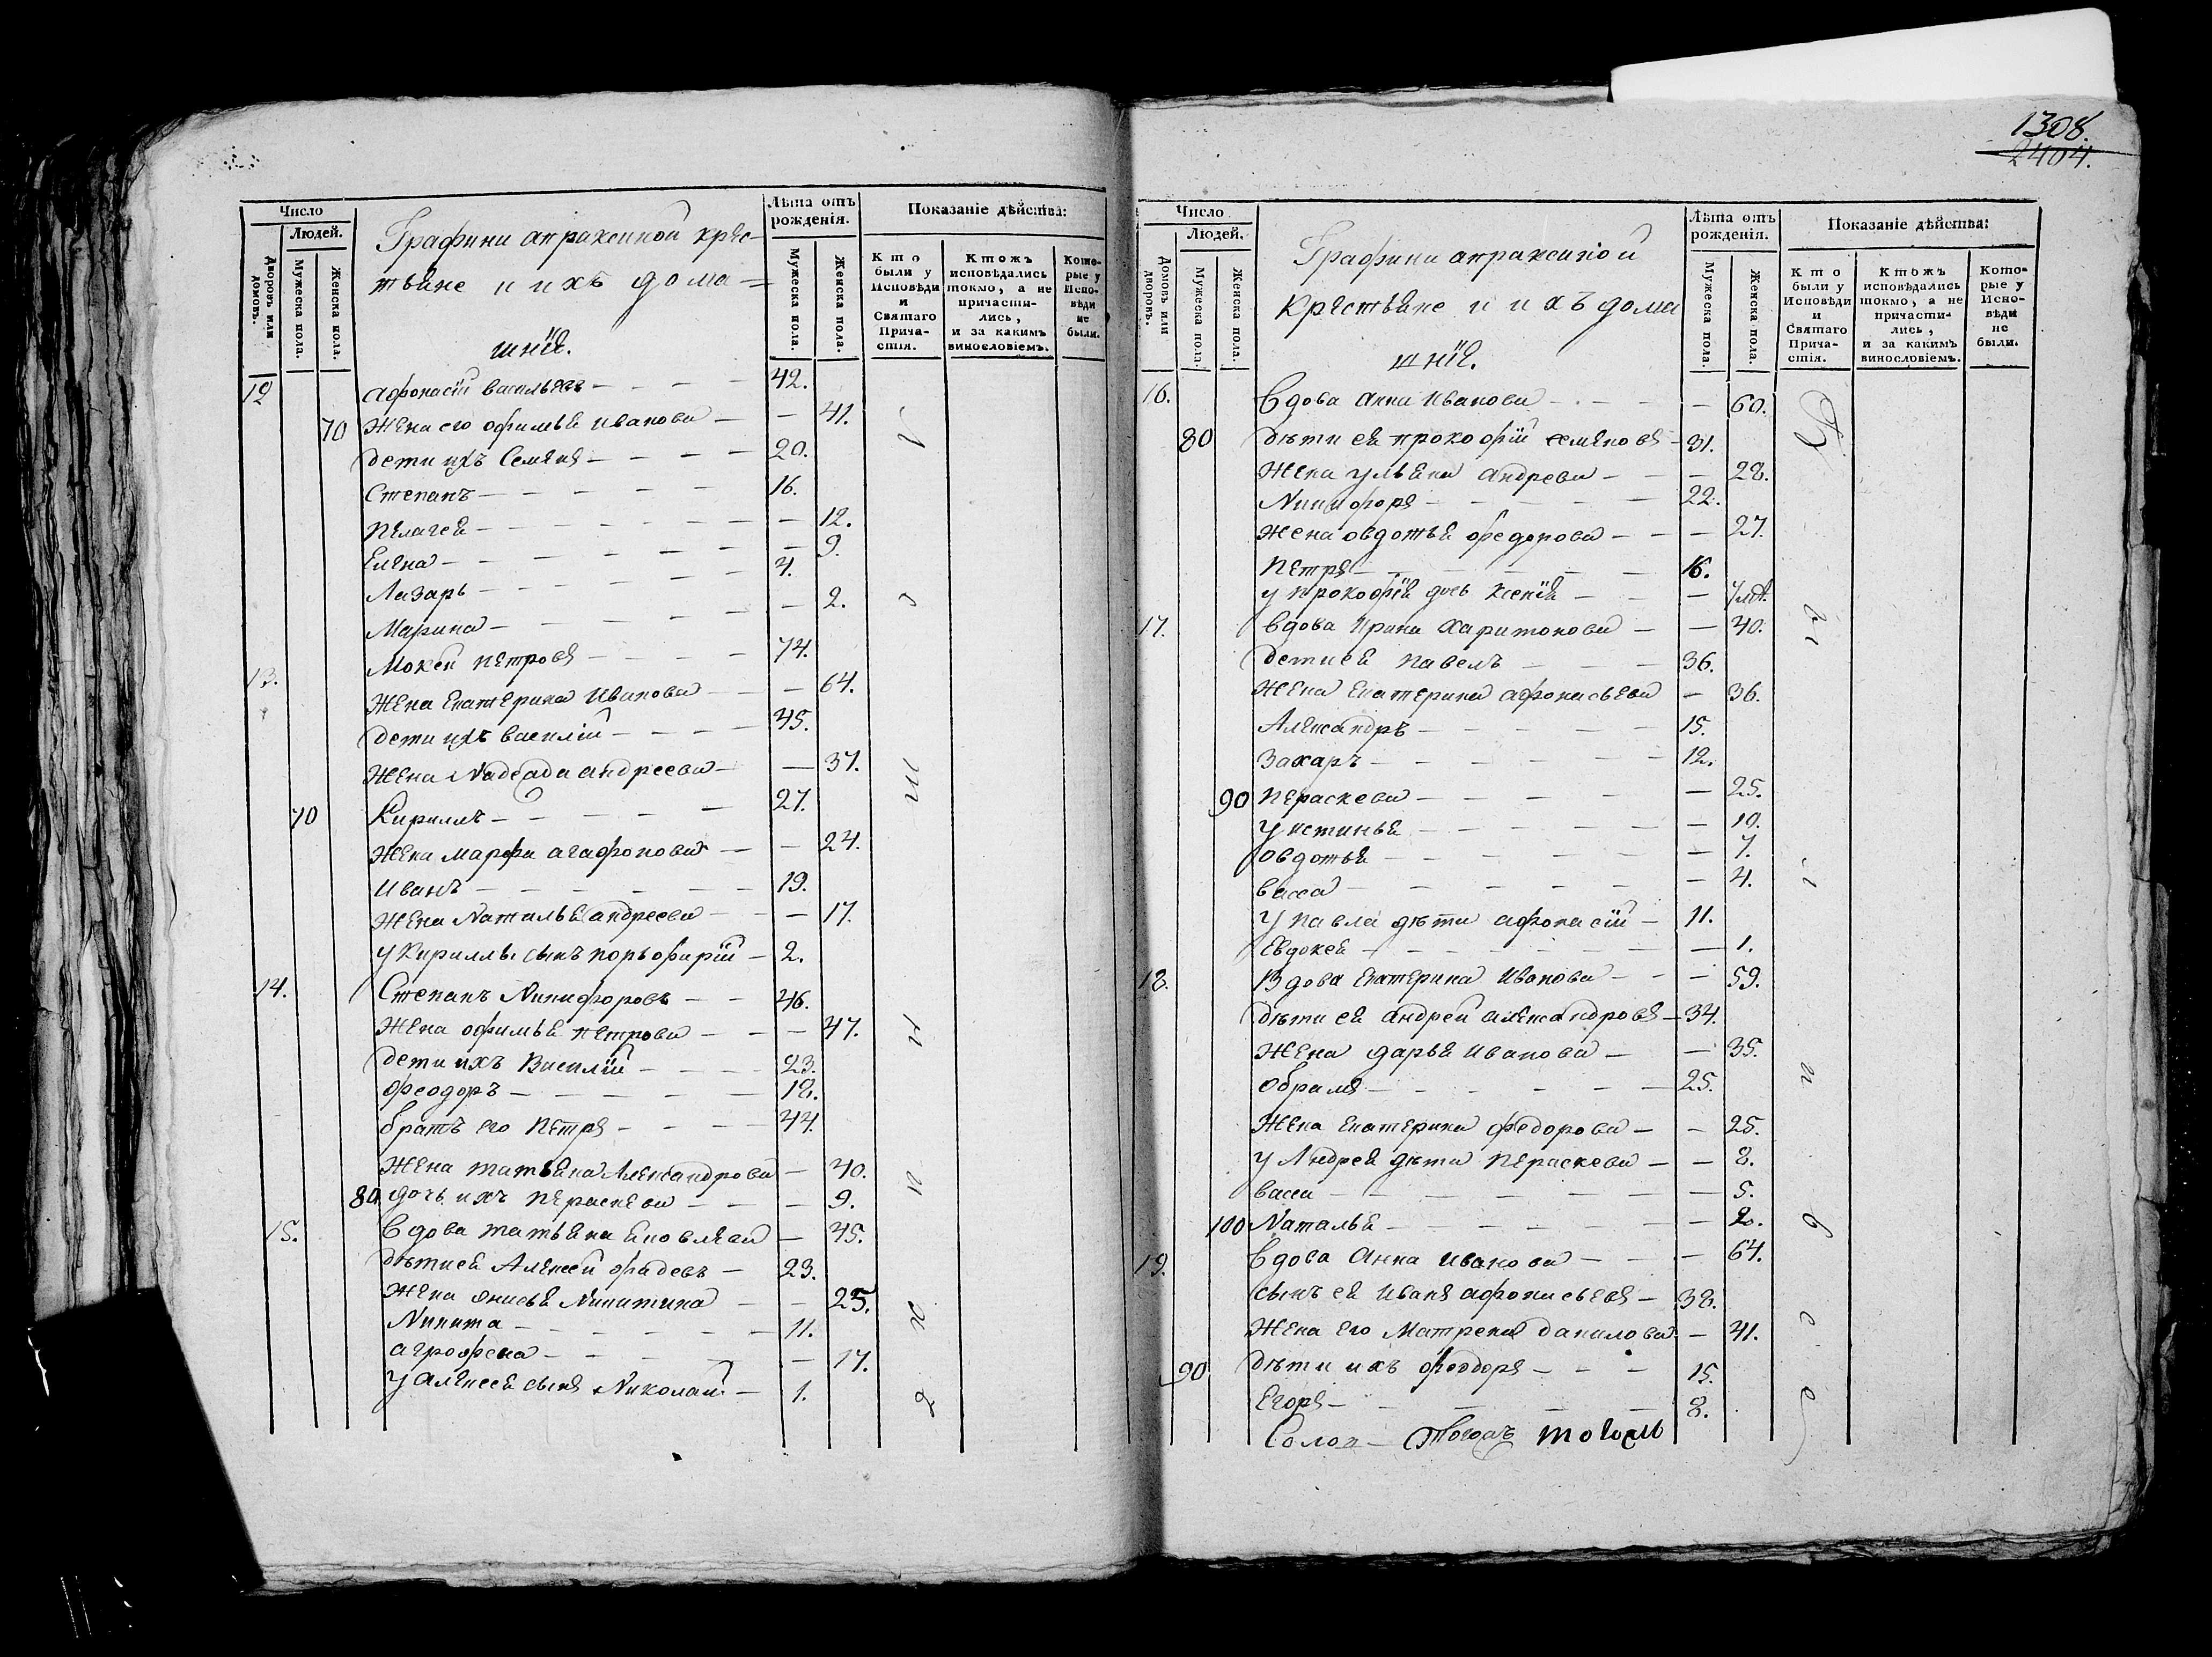 1308.
2404.
Число
Людей.
Дворовъ или домовъ.
Мужеска пола.
Женска пола.
Графини апраксиной крес-
тьяне и ихъ дома=
шнїе.
Лѣта отъ рожденія.
Мужеска пола.
Женска пола.
Показаніе дѣйства:
Кто были у Исповѣди и Святаго Прича-стія.
Ктожъ исповѣдались токмо, а не причасти-лись, и за какимъ винословіемъ.
Кото-рые у Испо-вѣди не были.
12 афонасїй васильевъ — 42.
70 Жена его офимья иванова — 41.
дети ихъ Семенъ — 20.
Степанъ — 16.
пелагея — 12.
Елена — 9.
Лазарь — 4.
Марина — 2.
13. Мокей петровъ — 74.
Жена Екатерина Иванова — 64.
дети ихъ василїй — 45.
Жена андреева — 37.
70 Кирилъ — 27.
Жена марфа агафонова — 24.
иванъ — 19.
Жена Наталья андреева — 17.
у Кириллы сынъ порьфирїй — 2.
14. Степанъ Никифоровъ — 46.
Жена офимья петрова — 47.
дети ихъ Василїй — 23.
феодоръ — 18.
братъ его петръ — 44.
Жена татьяна Александрова — 40.
80 дочь ихъ пераскева — 9.
15. вдова татьяна — 45.
дѣти ея Алексей фадевъ — 23.
Жена анисья Никитина — 25.
Никита — 11.
агрофена — 17.
у алексея сынъ Николай — 1.
Число
Людей.
Домовъ или дворовъ.
Мужеска пола.
Женска пола.
Графини апраксиной
крестьяне и ихъ дома
шнїе.
Лѣта отъ рожденія.
Мужеска пола.
Женска пола.
Показаніе дѣйства:
Кто были у Исповѣди и Святаго Прича-стія.
Ктожъ исповѣдались токмо, а не причасти-лись, и за какимъ винословіемъ.
Кото-рые у Испо-вѣди не были.
16. вдова анна иванова — 60.
80 дѣти ея прокофїй семеновъ — 31.
Жена ульяна андрева — 28.
Никифоръ — 22.
жена овдотья федорова — 27.
петръ — 16.
у прокофїя дочь ксенїя —
17. вдова Ирина харитонова — 40.
дети ея павелъ — 36.
Жена екатерина афонасьева — 36.
Александръ — 15.
Захаръ — 12.
90 пераскева — 25.
устинья — 10.
овдотья — 7.
васса — 4.
у павла дѣти афонасїй — 11.
Евдокея — 1.
18. Вдова Екатерина Иванова — 59.
дѣти ея андрей александровъ — 34.
Жена дарья иванова — 35.
обрамъ — 25.
Жена екатерина федорова — 25.
у Андрея дѣти пераскева — 8.
васса — 5.
100 Наталья — 2.
19. вдова Анна иванова — 64.
сынъ ея иванъ афонасьевъ — 38.
Жена его Матрена данилова — 41.
90 дѣти ихъ феодоръ — 15.
Егоръ — 8.